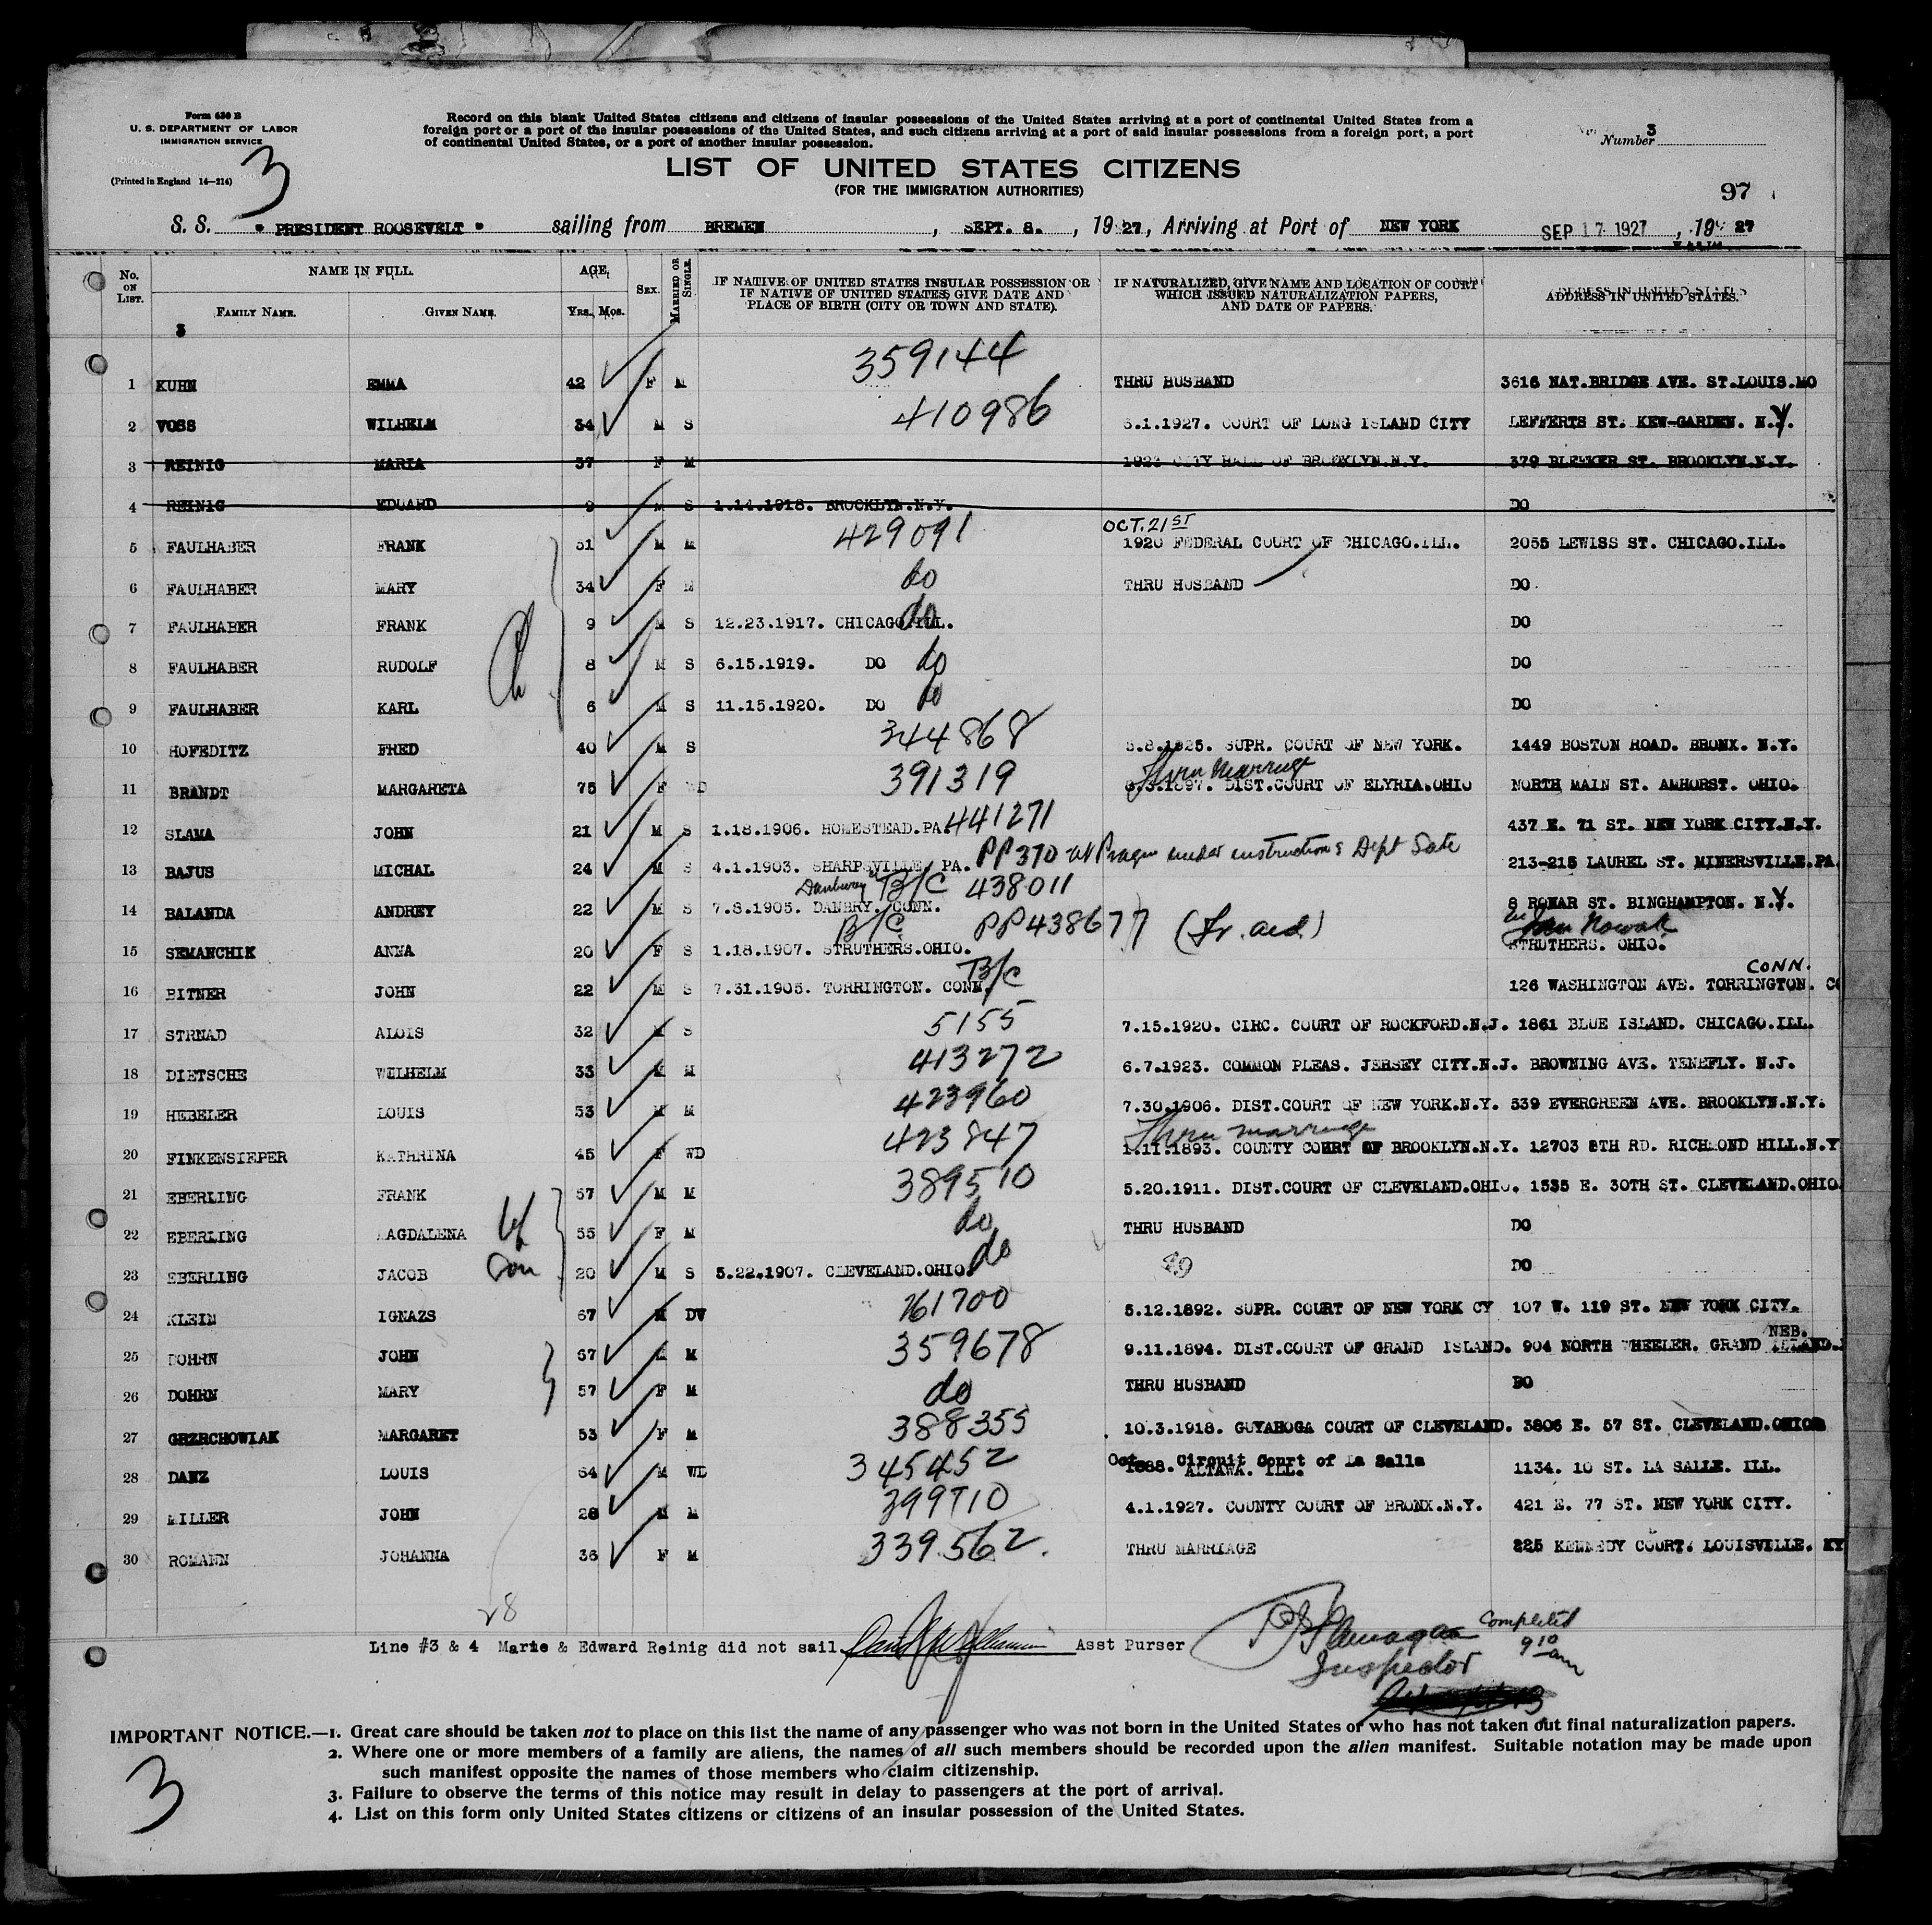 Form 630 B
U. S. DEPARTMENT OF LABOR
IMMIGRATION SERVICE
(Printed in England 14—214)
3
Record on this blank United States citizens and citizens of insular possessions of the United States arriving at a port of continental United States from a
foreign port or a port of the insular possessions of the United States, and such citizens arriving at a port of said insular possessions from a foreign port, a port
of continental United States, or a port of another insular possession.
Number 3
LIST OF UNITED STATES CITIZENS
(FOR THE IMMIGRATION AUTHORITIES)
97
S. S. " PRESIDENT ROOSEVELT " sailing from BREMEN, SEPT. 8., 1927, Arriving at Port of NEW YORK SEP 17 1927, 1927
No. ON LIST. NAME IN FULL. AGE. SEX. MARRIED OR SINGLE. IF NATIVE OF UNITED STATES INSULAR POSSESSION OR IF NATIVE OF UNITED STATES, GIVE DATE AND PLACE OF BIRTH (CITY OR TOWN AND STATE). IF NATURALIZED, GIVE NAME AND LOCATION OF COURT WHICH ISSUED NATURALIZATION PAPERS, AND DATE OF PAPERS. ADDRESS IN UNITED STATES.
FAMILY NAME. GIVEN NAME. YRS. MOS.
3
1 KUHN EMMA 42 F M 359144 THRU HUSBAND 3616 NAT.BRIDGE AVE. ST.LOUIS.MO
2 VOSS WILHELM 34 M S 410986 .1.1927. COURT OF LONG ISLAND CITY LEFFERTS ST. KEW-GARDEN. N.Y.
3 REINIG MARIA 37 F M CITY HALL OF BROOKLYN.N.Y. 379 BLEEKER ST. BROOKLYN.N.Y.
4 REINIG EDUARD 9 M S 1.14.1918. BROOKLYN.N.Y. DO
OCT. 21ST
5 FAULHABER FRANK 51 M M 429091 1920 FEDERAL COURT OF CHICAGO.ILL. 2055 LEWISS ST. CHICAGO.ILL.
6 FAULHABER MARY 34 F M do THRU HUSBAND DO
7 FAULHABER FRANK 9 M S 12.23.1917. CHICAGO.ILL. do DO
8 FAULHABER RUDOLF 8 M S 6.15.1919. DO do DO
9 FAULHABER KARL 6 M S 11.15.1920. DO do DO
Ch
10 HOFEDITZ FRED 40 M S 344868 .8.1925. SUPR. COURT OF NEW YORK. 1449 BOSTON ROAD. BRONX. N.Y.
Thru Marriage
11 BRANDT MARGARETA 75 F WD 391319 .3.1897. DIST.COURT OF ELYRIA.OHIO NORTH MAIN ST. AMHORST. OHIO.
12 SLAMA JOHN 21 M S 1.18.1906. HOMESTEAD.PA. 441271 437 E. 71 ST. NEW YORK CITY.N.Y.
13 BAJUS MICHAL 24 M S 4.1.1903. SHARPSVILLE, PA. PP 370 at Prague under instructions Dept State 213-215 LAUREL ST. MINERSVILLE.PA.
Danbury B/C 438011
14 BALANDA ANDREY 22 M S 7.8.1905. DANBRY. CONN. 8 ROMAR ST. BINGHAMPTON. N.Y.
B/C PP 438677 Nowak
15 SEMANCHIK ANNA 20 F S 1.18.1907. STRUTHERS.OHIO. STRUTHERS. OHIO.
B/C CONN.
16 BITNER JOHN 22 M S 7.31.1905. TORRINGTON. CONN. 126 WASHINGTON AVE. TORRINGTON. CO
17 STRNAD ALOIS 32 M S 5155 7.15.1920. CIRC. COURT OF ROCKFORD.N.J. 1861 BLUE ISLAND. CHICAGO.ILL.
18 DIETSCHE WILHELM 33 M M 413272 6.7.1923. COMMON PLEAS. JERSEY CITY.N.J. BROWNING AVE. TENEFLY. N.J.
19 HEBELER LOUIS 53 M M 423960 7.30.1906. DIST.COURT OF NEW YORK.N.Y. 539 EVERGREEN AVE. BROOKLYN.N.Y.
Thru marriage
20 FINKENSIEPER KATHRINA 45 F WD 423847 1.11.1893. COUNTY COURT OF BROOKLYN.N.Y. 12703 8TH RD. RICHMOND HILL.N.Y
21 EBERLING FRANK 57 M M 389510 5.20.1911. DIST.COURT OF CLEVELAND.OHIO. 1535 E. 30TH ST. CLEVELAND.OHIO.
22 EBERLING MAGDALENA wf 55 F M do THRU HUSBAND DO
23 EBERLING JACOB son 20 M S 5.22.1907. CLEVELAND.OHIO. do 49 DO
24 KLEIN IGNAZS 67 M DV 261700 5.12.1892. SUPR. COURT OF NEW YORK CY 107 W. 119 ST. NEW YORK CITY.
NEB.
25 DOHRN JOHN 67 M M 359678 9.11.1894. DIST.COURT OF GRAND ISLAND. 904 NORTH WHEELER. GRAND ISLAND.
26 DOHRN MARY 57 F M do THRU HUSBAND DO
27 GRZRCHOWIAK MARGARET 53 F M 388355 10.3.1918. GUYAHOGA COURT OF CLEVELAND. 3806 E. 57 ST. CLEVELAND.OHIO
Oct. Circuit Court of La Salle
28 DANZ LOUIS 64 M WD 345452 1888. ALTAWA. ILL. 1134. 10 ST. LA SALLE. ILL.
29 MILLER JOHN 28 M M 399710 4.1.1927. COUNTY COURT OF BRONX.N.Y. 421 E. 77 ST. NEW YORK CITY.
30 ROMANN JOHANNA 36 F M 339562. THRU MARRIAGE 225 KENNEDY COURT. LOUISVILLE. KY
28
Line #3 & 4 Marie & Edward Reinig did not sail Asst Purser
Flanagan Completed
Inspector 9 10 am
IMPORTANT NOTICE.—1. Great care should be taken not to place on this list the name of any passenger who was not born in the United States or who has not taken out final naturalization papers.
2. Where one or more members of a family are aliens, the names of all such members should be recorded upon the alien manifest. Suitable notation may be made upon
such manifest opposite the names of those members who claim citizenship.
3. Failure to observe the terms of this notice may result in delay to passengers at the port of arrival.
4. List on this form only United States citizens or citizens of an insular possession of the United States.
3